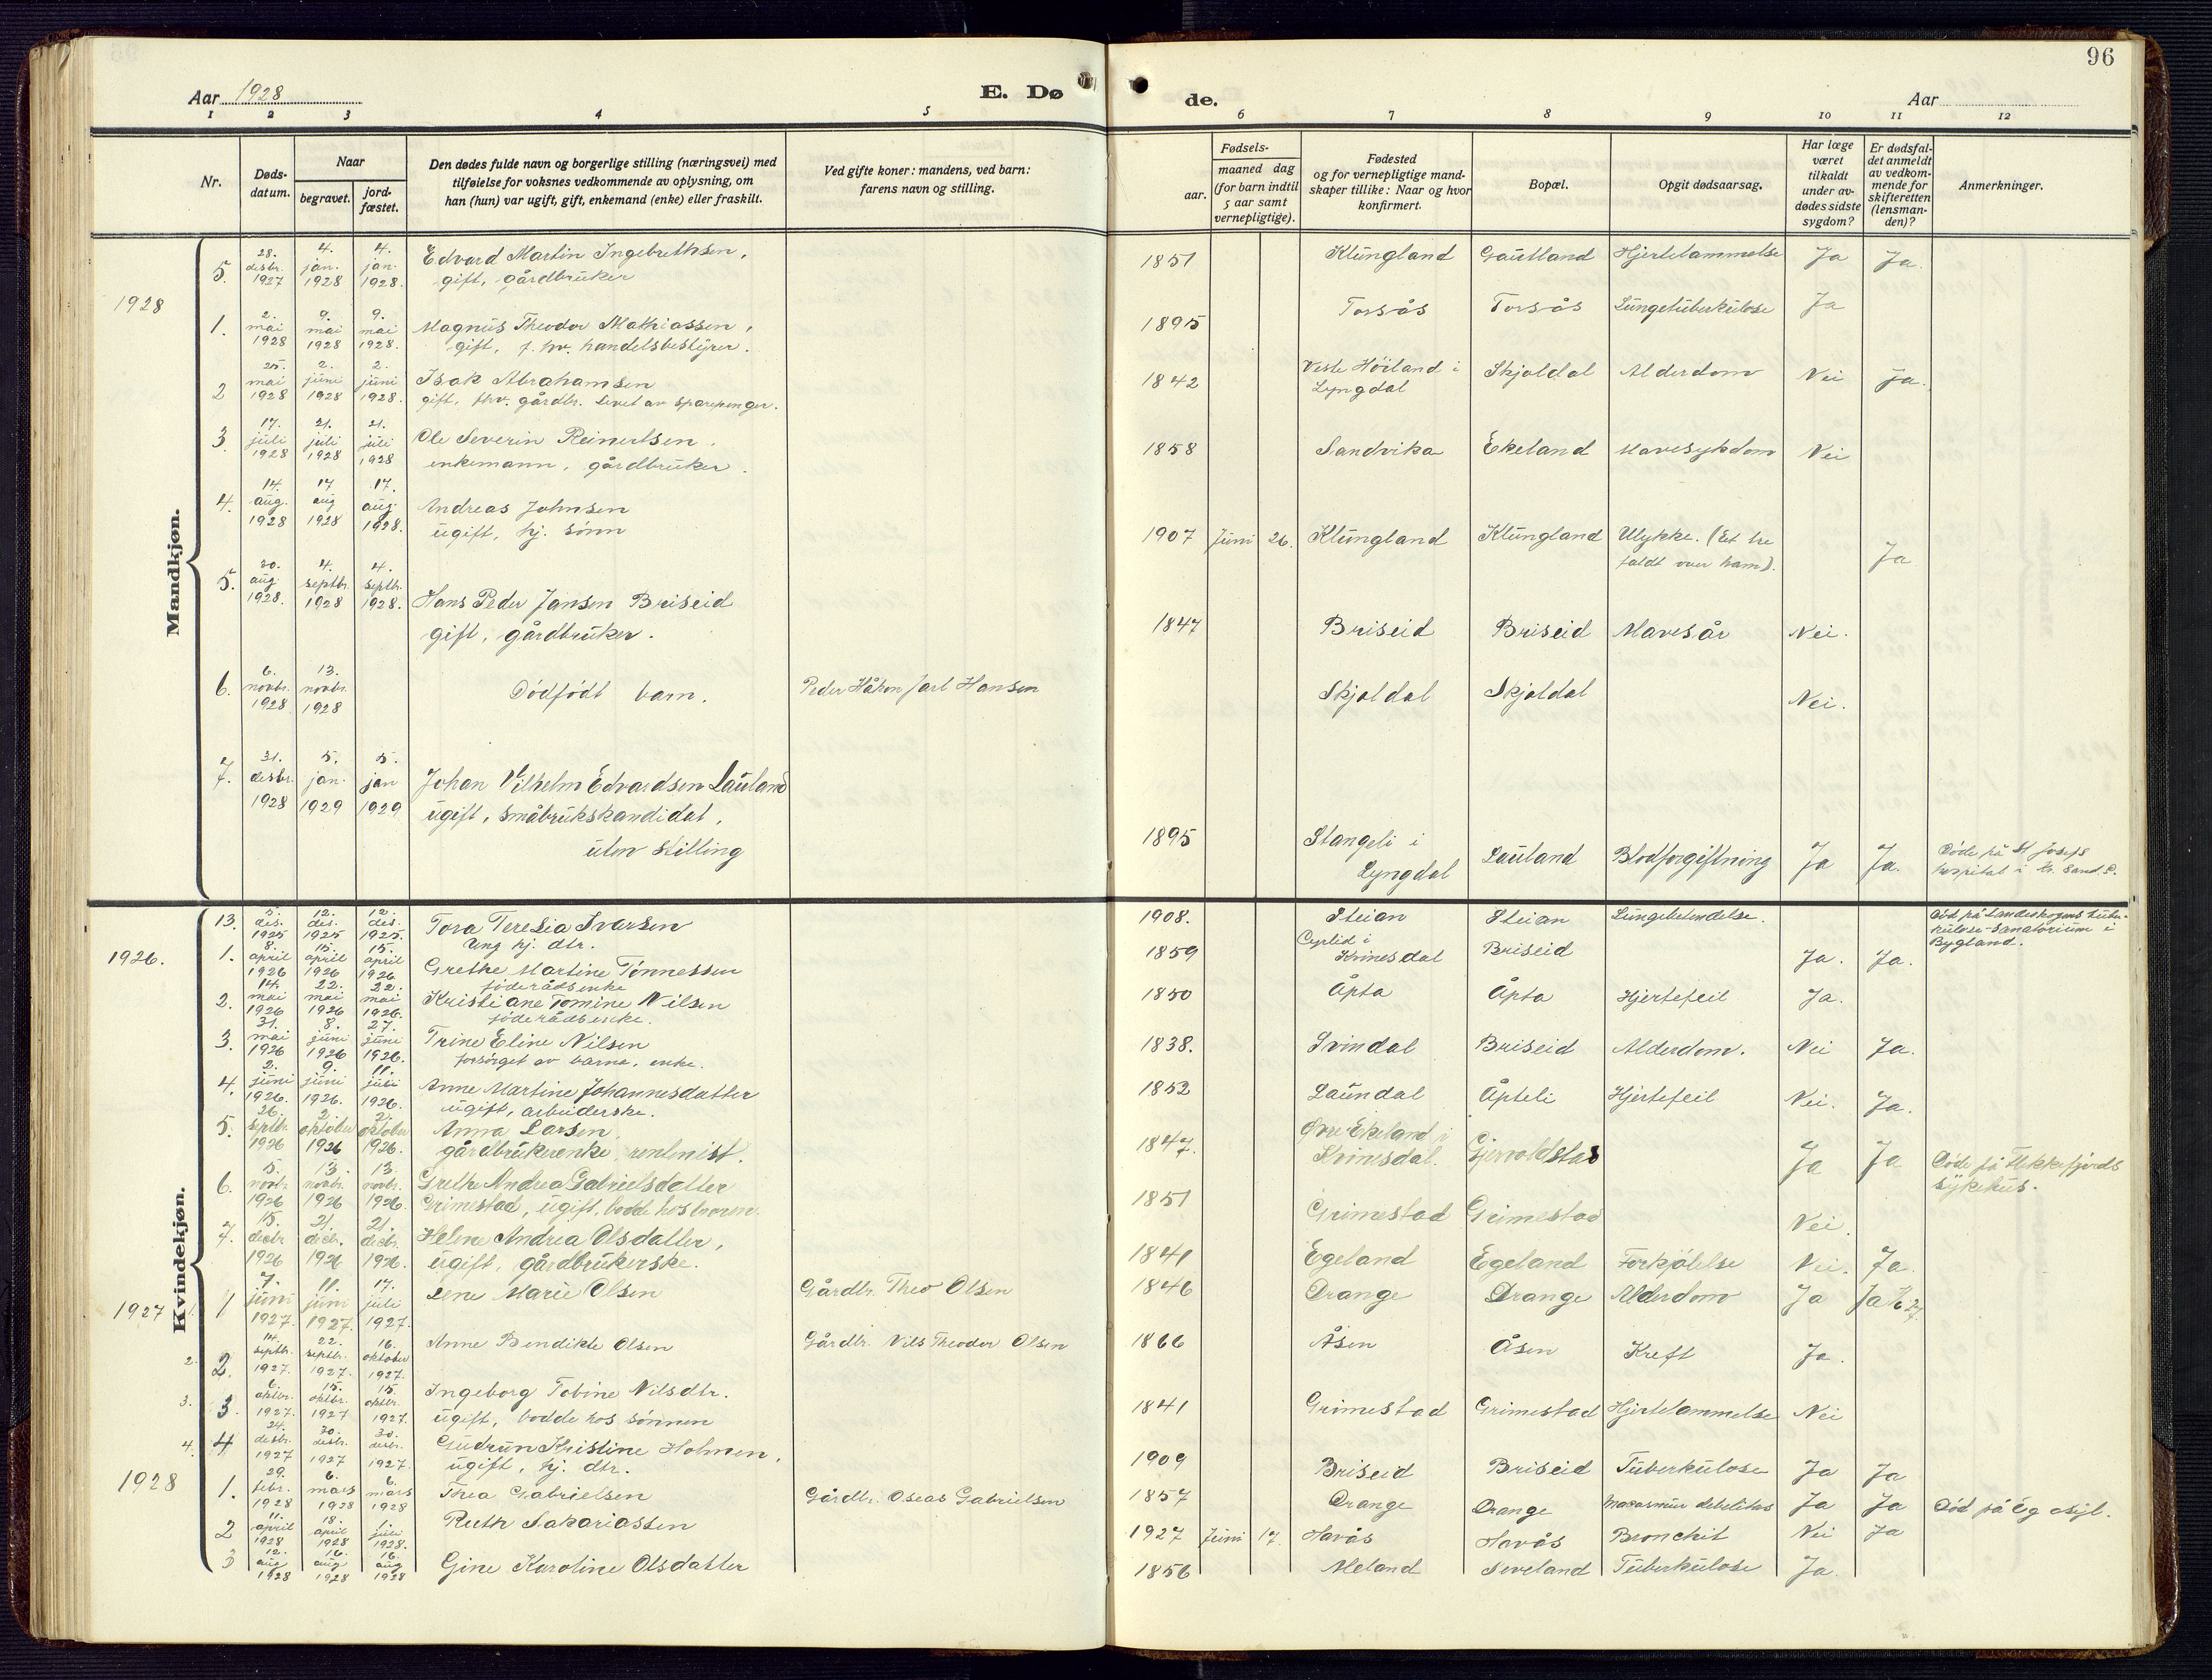 96
Aar 1928
E. Dø
de.
Aar
1 2 3 4 5 6 7 8 9 10 11 12
Nr.
Døds-datum.
Naar
begravet.
jord-fæstet.
Den dødes fulde navn og borgerlige stilling (næringsvei) med
tilføielse for voksnes vedkommende av oplysning, om
han (hun) var ugift, gift, enkemand (enke) eller fraskilt.
Ved gifte koner: mandens, ved barn:
farens navn og stilling.
Fødsels-
aar.
maaned dag
(for barn indtil
5 aar samt
vernepligtige).
Fødested
og for vernepligtige mand-
skaper tillike: Naar og hvor
konfirmert.
Bopæl.
Opgit dødsaarsag.
Har læge
været
tilkaldt
under av-
dødes sidste
sygdom?
Er dødsfal-
det anmeldt
av vedkom-
mende for
skifteretten
(lensman-
den)?
Anmerkninger.
Mandkjøn.
5. 28. desbr. 1927 4. jan. 1928 4. jan. 1928. Edvard Martin Ingebrethsen, 1851 Klungland Gautland Hjertelammelse Ja Ja.
gift, gårdbruker
1928
1. 2. mai 1928 9. mai 1928 9. mai 1928. Magnus Theodor Mathiassen, 1895 Torsås Torsås Lungetuberkulose Ja
gift, f. hv. handelsbestyrer.
2 25. mai 1928 2. juni 1928 2. juni 1928. Isak Abrahamsen 1842 Veste Höiland i Lyngdal Skjoldal Alderdom Nei Ja.
gift, fhv. gårdbr. Levet av sparepenger.
3 17. juli 1928 21. juli 1928 21. juli 1928 Ole Severin Reinertsen. 1858 Sandvika Ekeland Mavesykdom Nei
enkemann, gårdbruker.
4. 14. aug. 1928 17 aug 1928 17. aug. 1928. Andreas Johnsen 1907 Juni 26. Klungland Klungland Ulykke. (Et tre
ugift, hj. sönn faldt over ham). Ja
5. 30. aug. 1928. 4. septbr. 1928 4. septbr. 1928. Hans Peder Jansen Briseid
gift, gårdbruker. 1847 Briseid Briseid Mavesår Nei.
6. 6. novbr. 1928 13. novbr. 1928 Dödfödt barn. Peder Håkon Jarl Hansen Skjoldal Skjoldal Nei.
7. 31. desbr. 1928 5. jan. 1929 5. jan 1929 Johan Vilhelm Edvardsen Lauland
ugift, småbrukskandidat,
uten stilling 1895 Stangeli i Lyngdal Lauland Blodforgiftning Ja Ja. Döde på St. Josefs
hospital i Kr. Sand. S.
Kvindekjøn.
13. 5. des. 1925 12. des. 1925 12. des. 1925. Tora Teresia Ivarsen 1908. Steian Steian Lungebetendelse. Död på Landeskogens tuber-
kulose-Sanatorium i
Bygland.
Ung hj. dtr.
1926.
1. 8. april 1926 15. april 1926 15. april 1926. Grethe Martine Tönnessen 1859 i Kvinesdal Briseid Ja. Ja.
föderådsenke
2. 14. mai 1926 22. mai 1926 22. mai 1926. Kristiane Tomine Nilsen 1850 Åpta Åpta Hjertefeil Ja.
föderådsenke.
3. 31. mai 1926 8. juni 1926 27. juni 1926. Trine Eline Nilsen 1838. Svindal Briseid Alderdom. Nei Ja.
forsörget av barna, enke.
4. 2. juni 1926. 9. juni 1926. 11. juli 1926. Anne Martine Johannesdatter 1852 Laundal Åpteli Hjertefeil Nei. Ja.
ugift, arbeiderske.
5. 26. septbr 1926 2. oktober 1926 2. oktober 1926. Anna Larsen, 1847. Övre Ekeland i Kvinesdal. Gjervoldstad Ja Ja Döde på Flekkefjords
sykehus.
gårdbrukerenke, rentenist.
6. 5. novbr. 1926 13. novbr. 1926 13. novbr. 1926. Grethe Andrea Gabrielsdatter 1851 Grimestad Grimestad Nei.
Grimestad, ugift, bodde hos broren.
7. 15. decbr 1926 21. decbr. 1926 21. decbr. 1926. Helene Andrea Olsdatter, 1841 Egeland Egeland Forkjölelse Nei. Ja.
ugift, gårdbrukerske.
1927
1. 1 7. juni 1927. 11. juni 1927. 17. juli 1927. Lene Marie Olsen Gårdbr. Theo Olsen 1846 Drange Drange Alderdom Ja Ja
2. 2. 14. septbr. 1927. 22. septbr. 1927. 16. oktober 1927. Anne Bendikte Olsen Gårdbr. Nils Theodor Olsen 1866 Åsen Åsen Kreft Ja.
3. 3. 6. oktbr. 1927. 15. oktbr. 1927 15. oktbr. 1927. Ingeborg Tobine Nilsdtr. 1841 Grimestad Grimestad Hjertelammelse Nei
ugift, bodde hos sönnen
4. 4 24. desbr. 1927 30. desbr. 1927 30. desbr. 1927. Gudrun Kristine Holmen, 1909 Briseid Briseid Tuberkulose Ja Ja
ugift, hj. dtr.
1928
1. 29. febr. 1928 6. mars 1928 6. mars 1928 Thea Gabrielsen Gårdbr. Oseas Gabrielsen 1857 Drange Drange Ja Ja Död på Eg asyl.
2 11. april 1928 18. april 1928 1. juli 1928. Ruth Sakariassen 1927 Juni 17. Havås Havås Bronchit Nei Ja
3 12. aug 1928 16. aug 1928 16. aug 1928 Gine Karoline Olsdatter 1856 Meland Seveland Tuberkulose Ja.